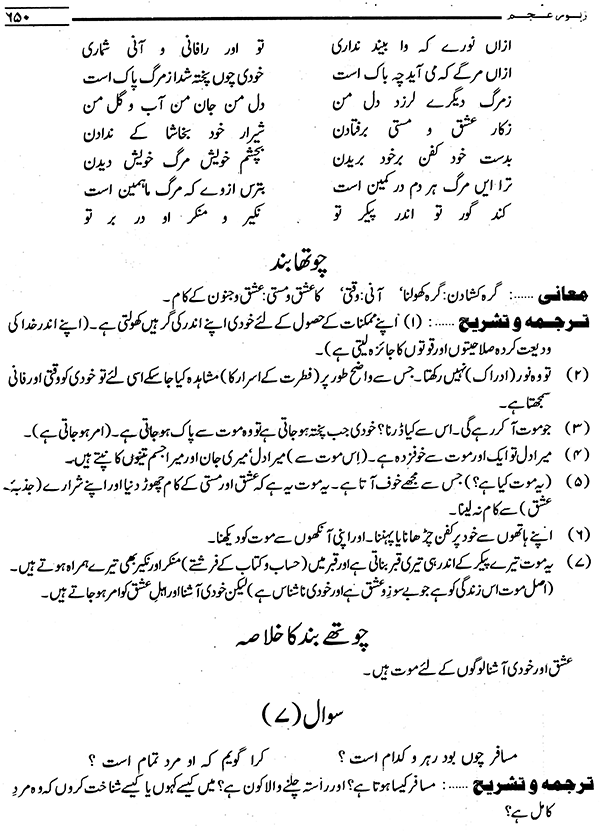 زبورِ عجم ۶۵۰
ازاں نورے کہ وا بیند نداری تو اور رافانی و آنی شماری
ازاں مرگے کہ می آید چہ باک است خودی چوں پختہ شد از مرگ پاک است
زمرگ دیگرے لرزد دل من دل من جان من آب و گل من
زکار عشق و مستی برفتادن شیرار خود بخاشا کے ندادن
بدست خود کفن برخود بریدن بچشم خویش مرگ خویش دیدن
ترا ایں مرگ ہر دم در کمین است بترس ازوے کہ مرگ ماہمین است
کند گور تو اندر پیکر تو نکیر و منکر او در بر تو
چوتھا بند
معانی ...... : گرہ کشادن: گرہ کھولنا، آنی: وقتی، کا عشق و مستی: عشق و جنون کے کام۔
ترجمہ و تشریح ...... : (۱) اپنے ممکنات کے حصول کے لئے خودی اپنے اندر کی گرہیں کھولتی ہے۔ (اپنے اندر خدا کی
ودیعت کردہ صلاحیتوں اور قوتوں کا جائزہ لیتی ہے)۔
(۲) تو وہ نور (ادراک) نہیں رکھتا۔ جس سے واضح طور پر (فطرت کے اسرار کا) مشاہدہ کیا جا سکے اسی لئے تو خودی کو وقتی اور فانی
سمجھتا ہے۔
(۳) جو موت آ کر رہے گی۔ اس سے کیا ڈرنا؟ خودی جب پختہ ہو جاتی ہے تو وہ موت سے پاک ہو جاتی ہے۔ (امر ہو جاتی ہے)۔
(۴) میرا دل تو ایک اور موت سے خوفزدہ ہے۔ (اِس موت سے) میرا دل، میری جان اور میرا جسم تینوں کانپتے ہیں۔
(۵) (یہ موت کیا ہے؟) جس سے مجھے خوف آتا ہے۔ یہ موت یہ ہے کہ عشق اور مستی کے کام چھوڑ دنیا اور اپنے شرارے (جذبۂ
عشق) سے کام نہ لینا۔
(۶) اپنے ہاتھوں سے خود پر کفن چڑھانا یا پہننا۔ اور اپنی آنکھوں سے موت کو دیکھنا۔
(۷) یہ موت تیرے پیکر کے اندر ہی تیری قبر بناتی ہے اور قبر میں (حساب و کتاب کے فرشتے) منکر اور نکیر بھی تیرے ہمراہ ہوتے ہیں۔
(اصل موت اس زندگی کو ہے جو بے سوزِ عشق ہے اور خودی نا شناس ہے) لیکن خودی آشنا اور اہلِ عشق کو امر ہو جاتے ہیں۔
چوتھے بند کا خلاصہ
عشق اور خودی آشنا لوگوں کے لئے موت ہیں۔
سوال (۷)
مسافر چوں بود رہر و کدام است ؟ کرا گویم کہ او مرد تمام است ؟
ترجمہ و تشریح ...... : مسافر کیسا ہوتا ہے؟ اور راستہ چلنے والا کون ہے؟ میں کیسے کہوں یا کیسے شناخت کروں کہ وہ مردِ
کامل ہے؟